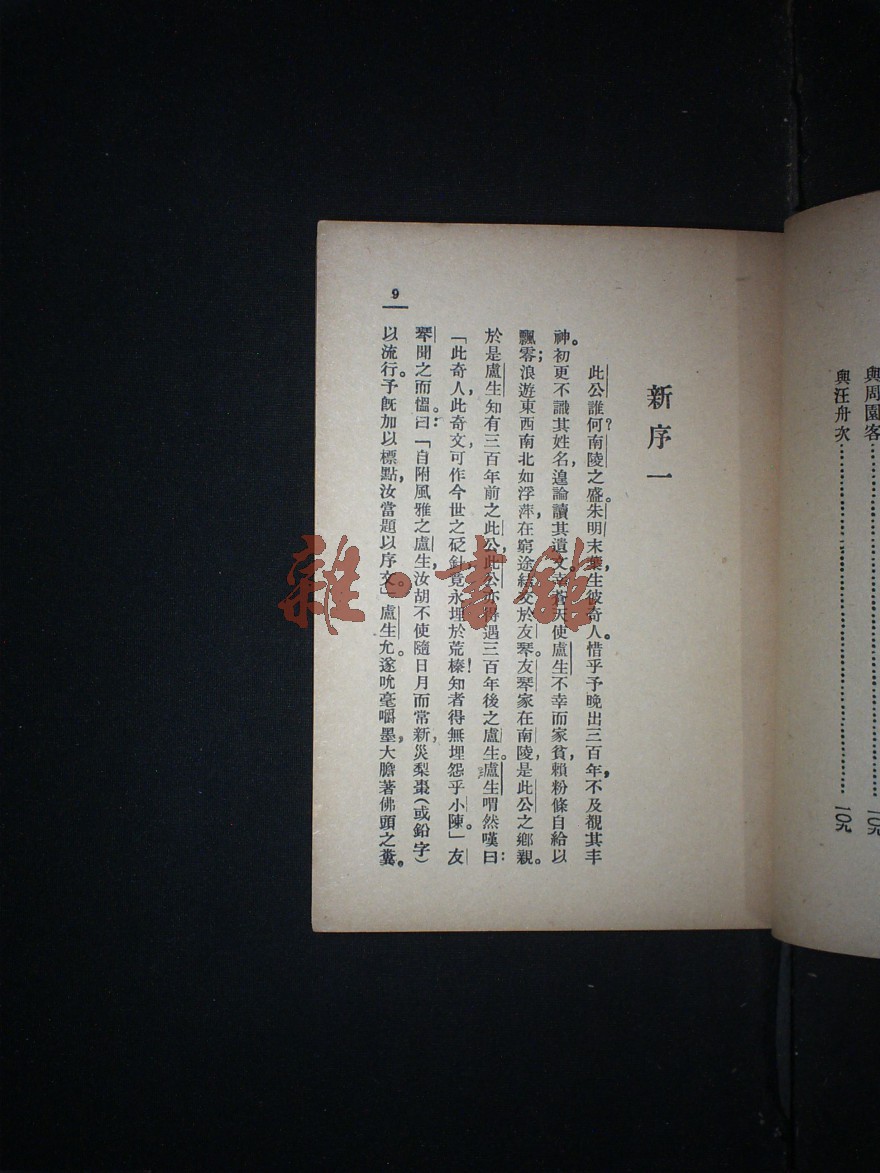 與周園客……一〇九
與汪舟次……一〇九
新序一
此公誰何?南陵之盛。朱明末葉,生彼奇人。惜乎予晚出三百年,不及覩其丰
神。初更不識其姓名,遑論讀其遺文。蒼天使盧生不幸而家貧,賴粉條自給以
飄零;浪遊東西南北如浮萍,在窮途結交於友琴。友琴家在南陵,是此公之鄉親。
於是盧生知有三百年前之此公,此公亦得遇三百年後之盧生。盧生喟然嘆曰:
「此奇人,此奇文,可作今世之砭針,竟永埋於荒榛!知者得無埋怨乎小陳。」友
琴聞之而慍。曰:「自附風雅之盧生,汝胡不使隨日月而常新,災梨棗(或鉛字)
以流行。予既加以標點,汝當題以序文。」盧生允。遂吮毫嚼墨,大膽著佛頭之糞。
9
雜·書館